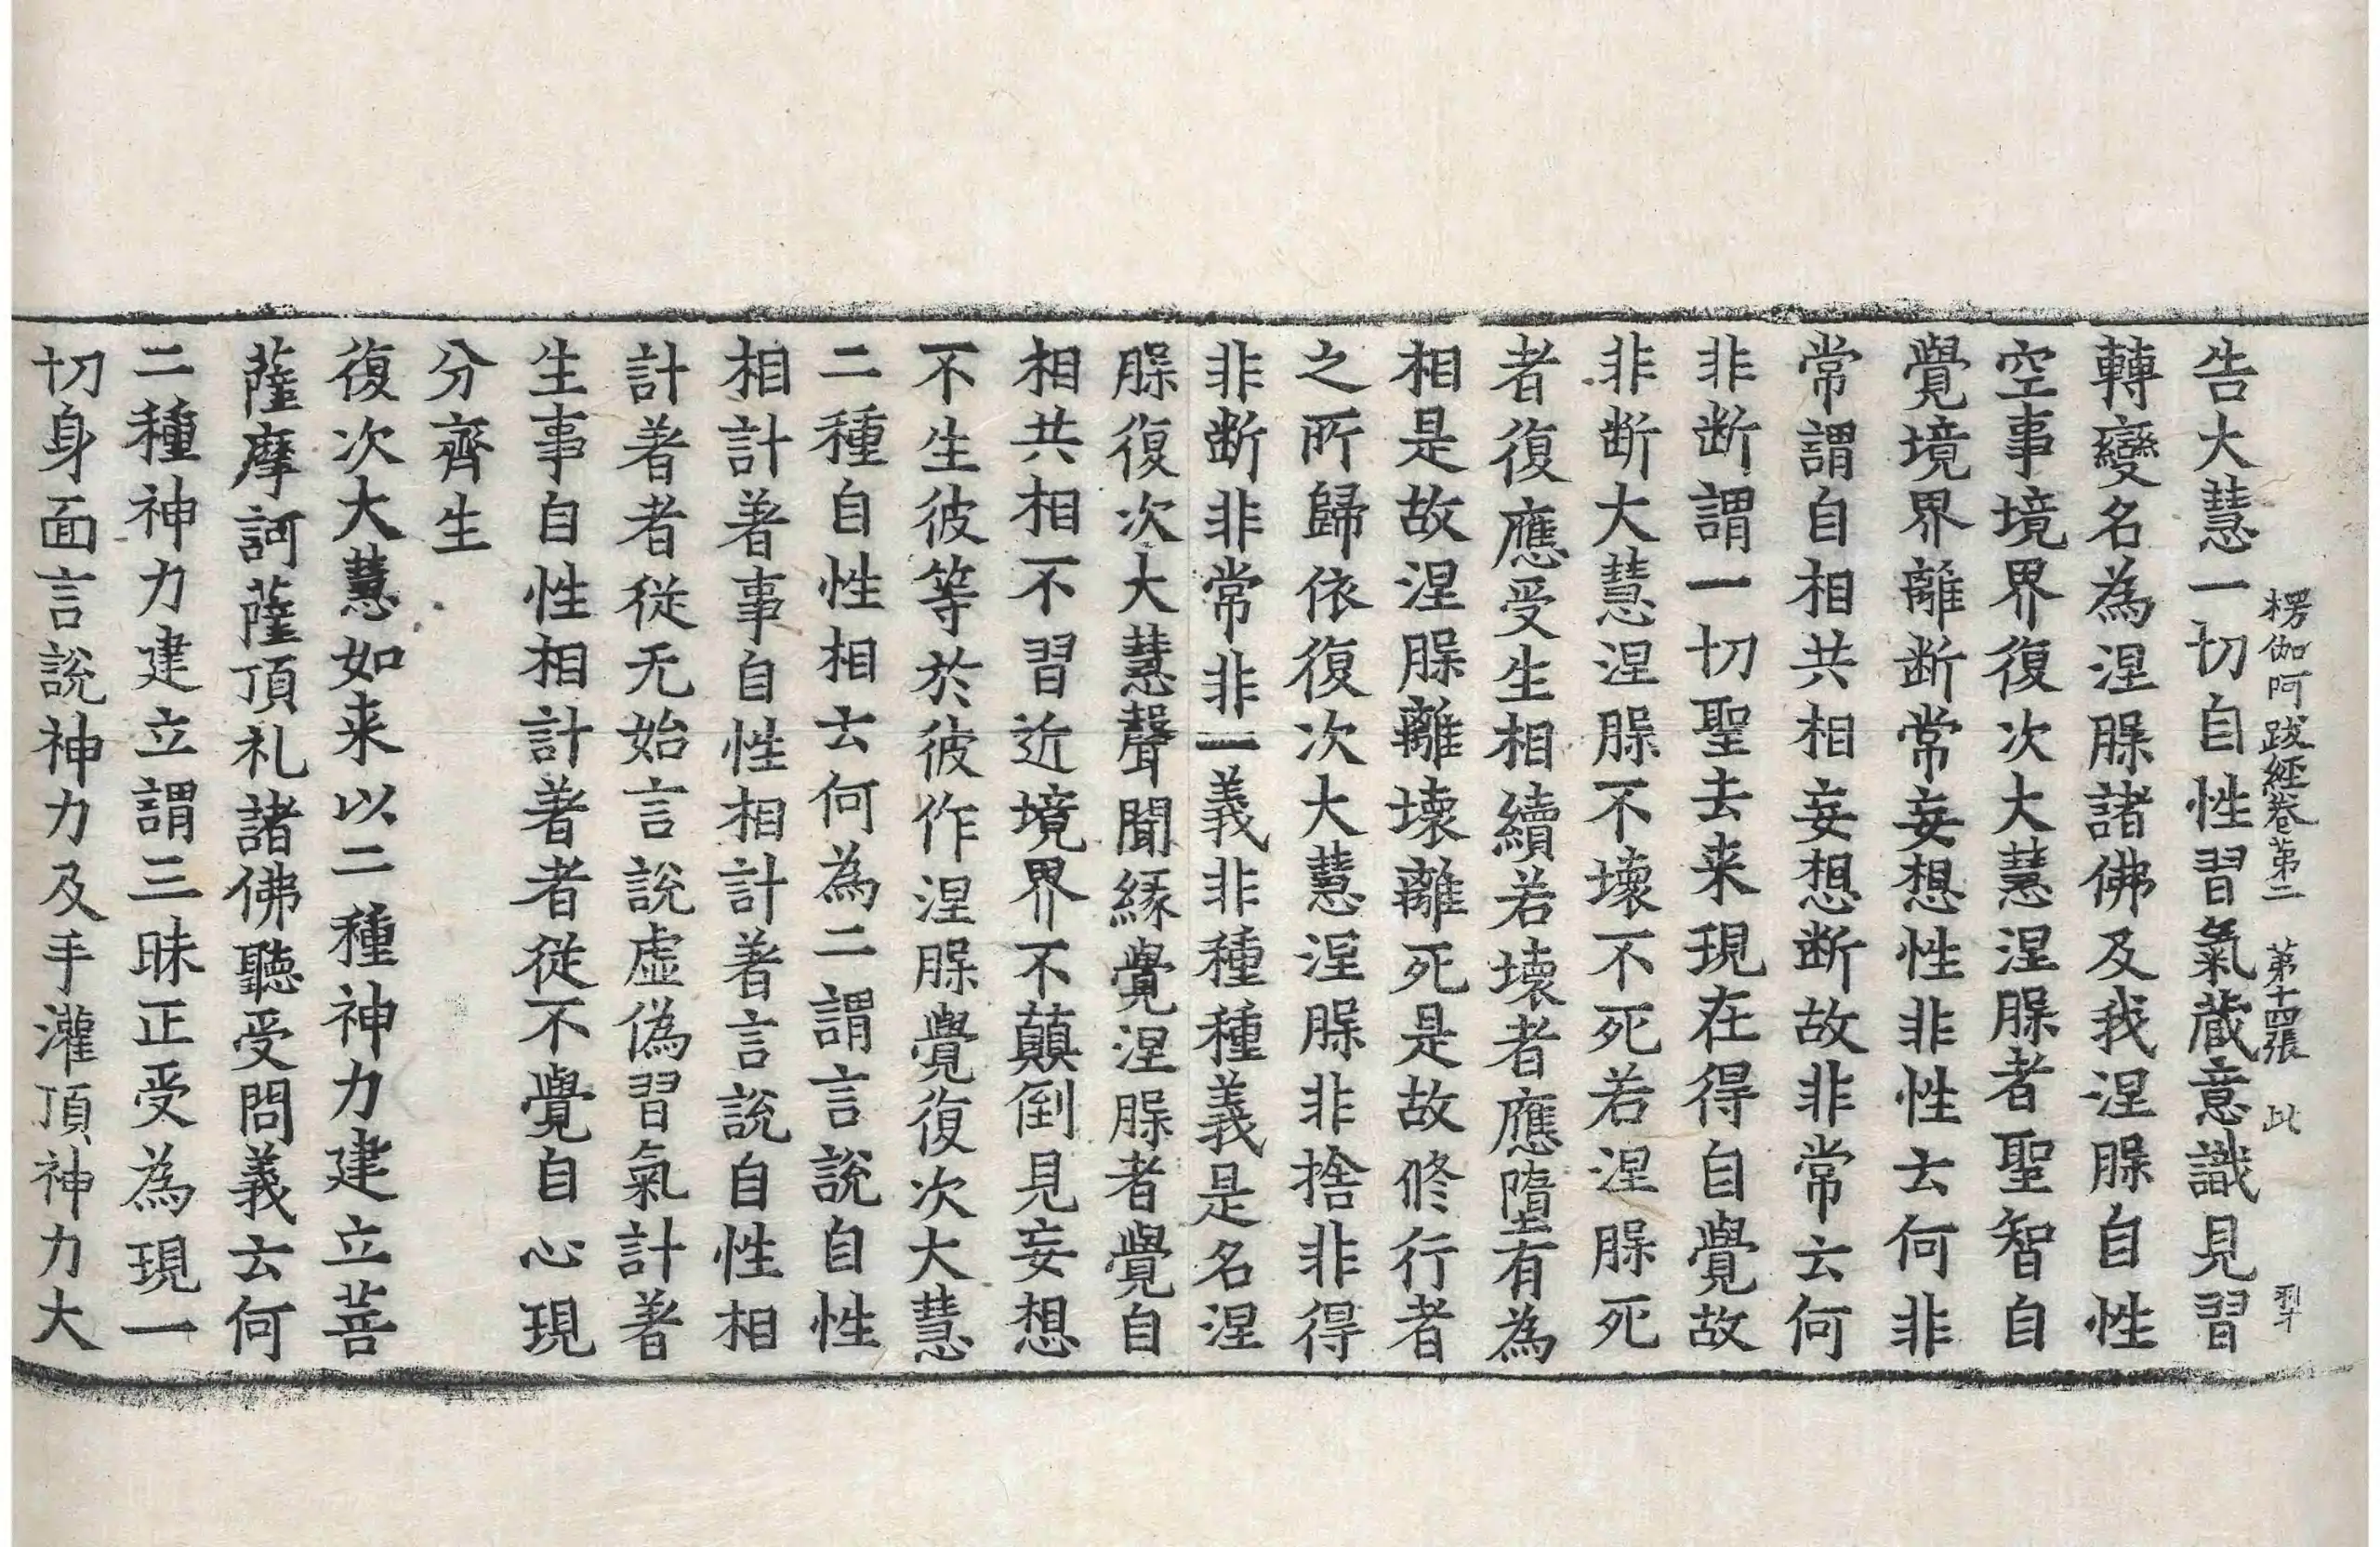 楞伽阿跋經卷第二　第十四張　此
告大慧一切自性習氣蔵意識見習
轉變名為涅脲諸佛及我涅脲自性
空事境界復次大慧涅脲者聖智自
覺境界離断常妄想性非性去何非
常謂自相共相妄想断故非常云何
非断謂一切聖去来現在得自覺故
非断大慧涅脲不壊不死若涅脲死
者復應受生相續若壊者應墮有為
相是故涅脲離壊離死是故修行者
之所歸依復次大慧涅脲非捨非得
非断非常非一義非種種義是名涅
脲復次大慧聲聞縁覺涅脲者覺自
相共相不習近境界不顛倒見妄想
不生彼等於彼作涅脲覺復次大慧
二種自性相去何為二謂言說自性
相計著事自性相計著言說自性相
計著者従无始言說虚偽習氣計著
生事自性相計著者従不覺自心現
分齊生
復次大慧如来以二種神力建立菩
薩摩訶薩頂礼諸佛聽受問義去何
二種神力建立謂三昧正受為現一
切身面言說神力及手灌頂神力大